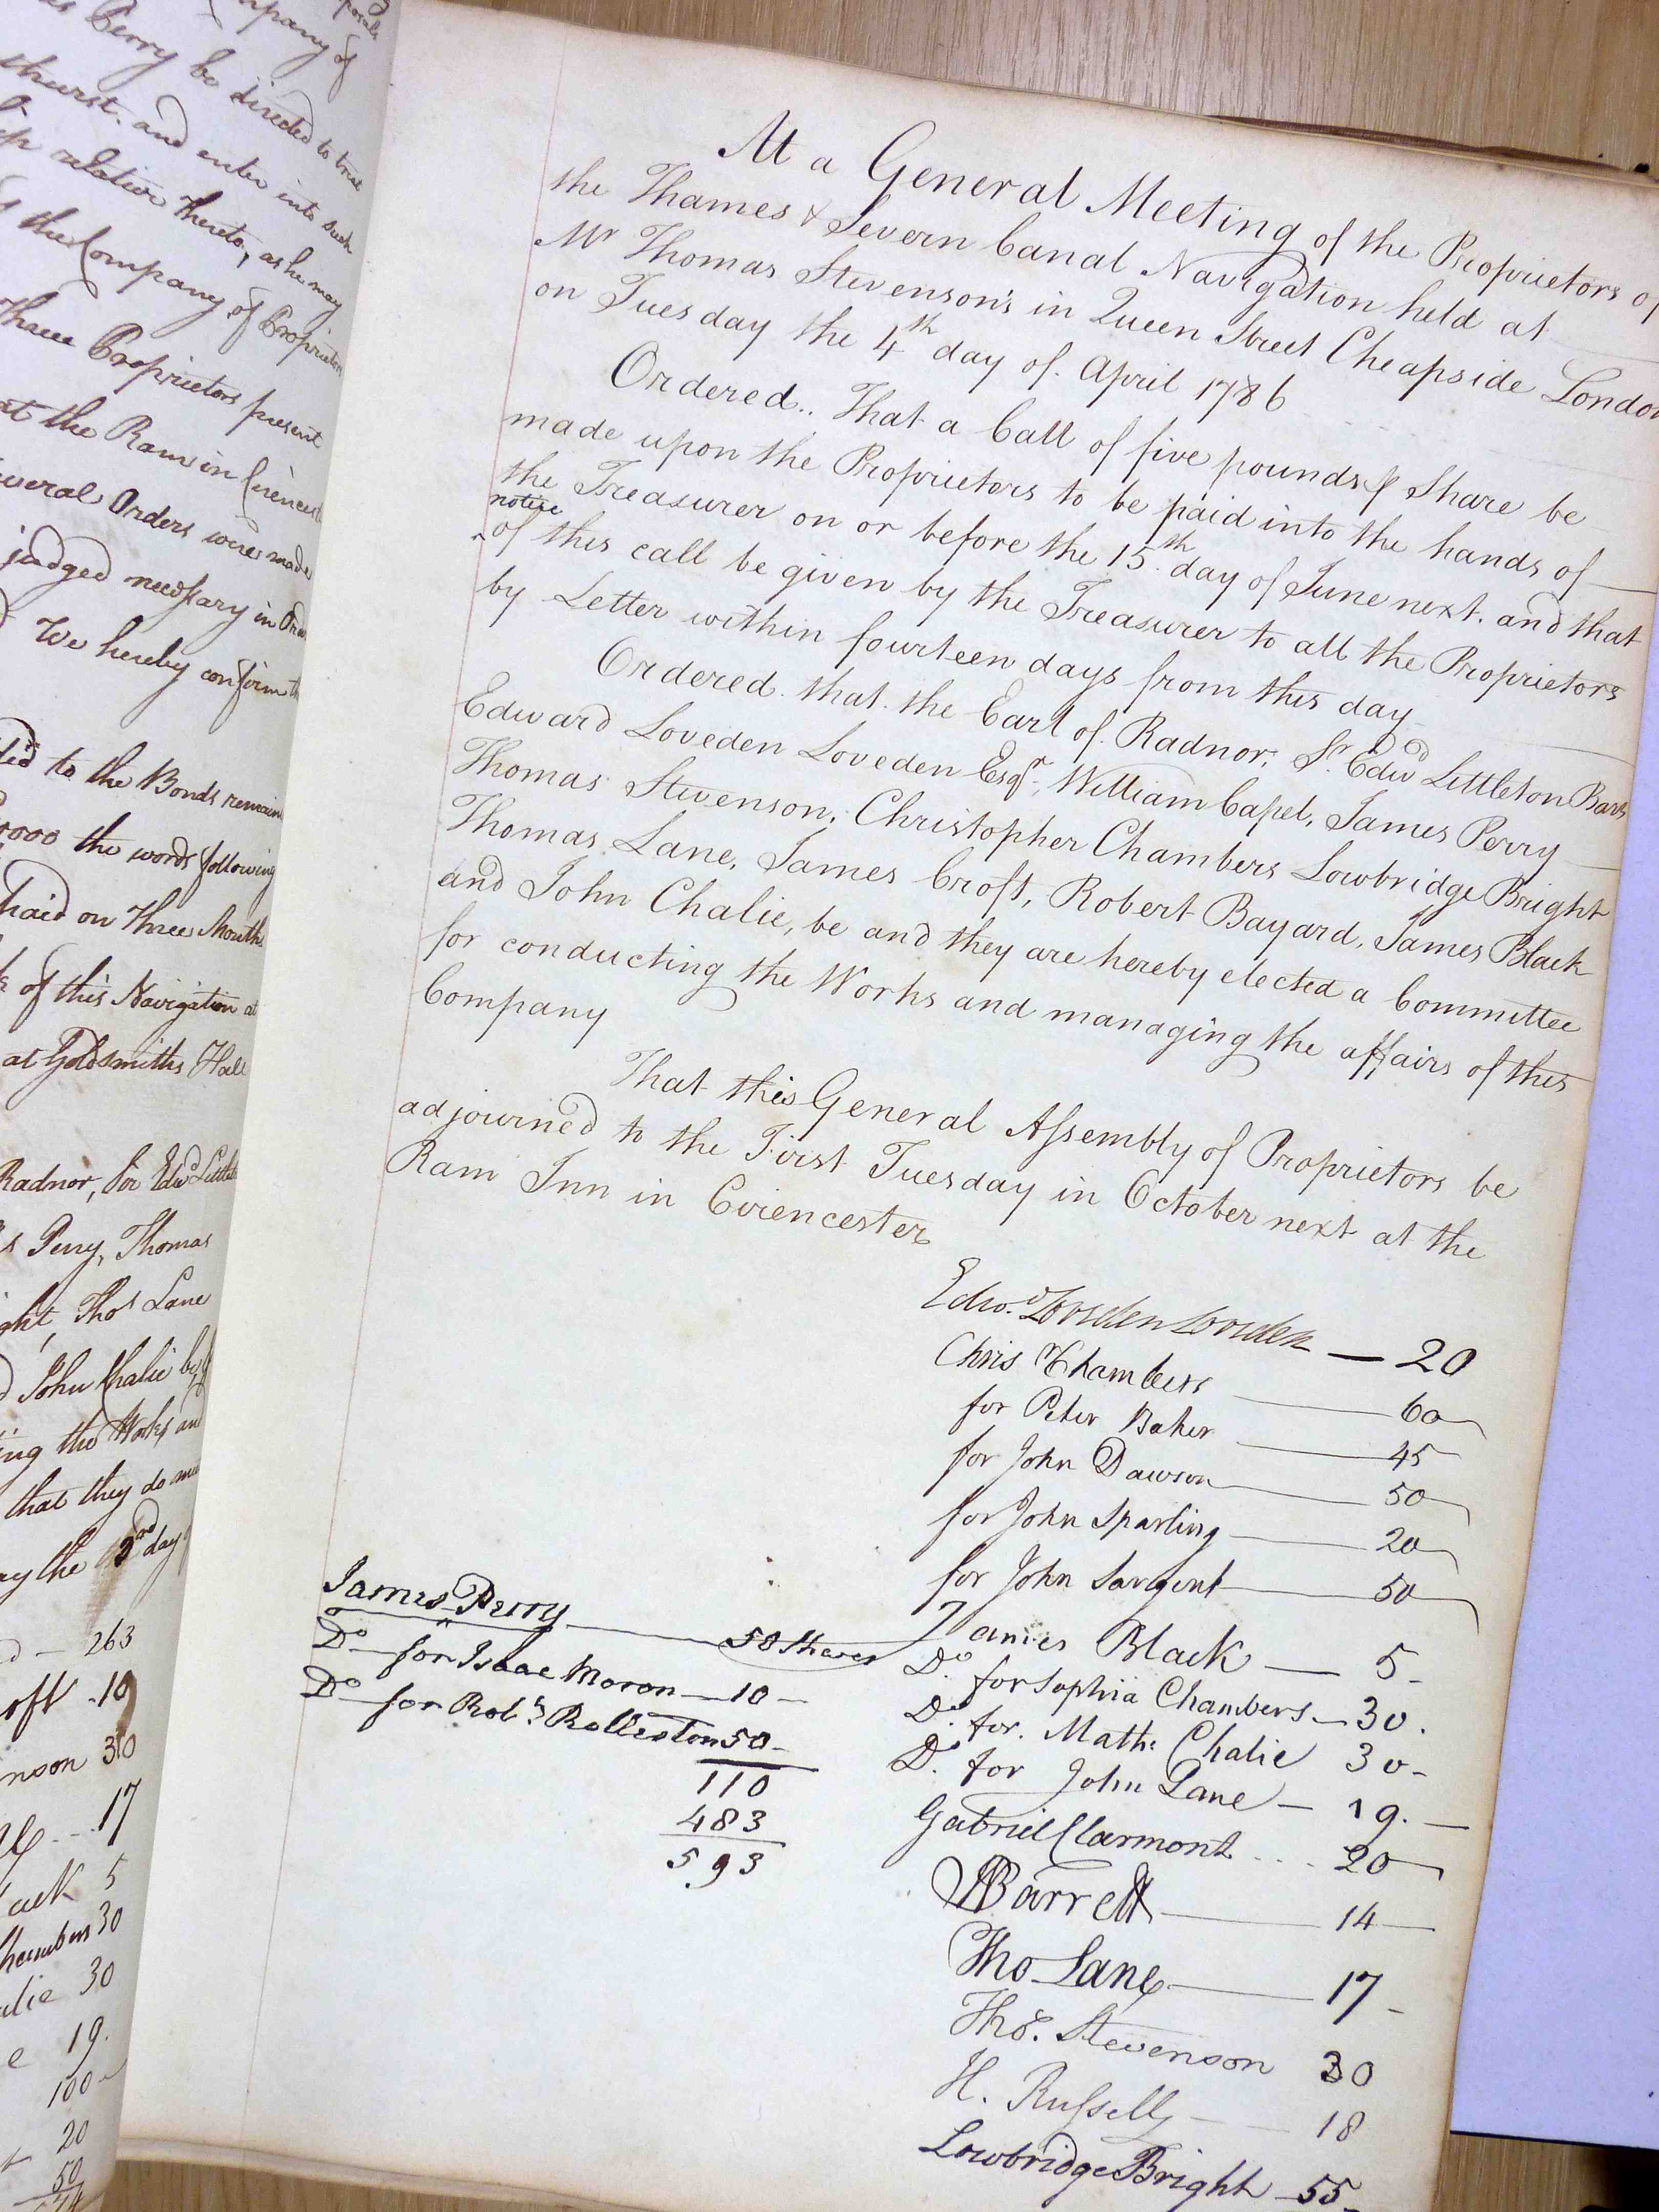 mpany of
Perry be directed to treat
hurst, and enter into such
relative thereto, as he may
the Company of Proprietors
Three Proprietors present
at the Ram in Cirences
everal Orders were made
judged necessary in Or
We hereby confirm th
to the Bonds remain
000 the words following
paid on three Months
of this Navigation at
at Goldsmiths Hall
Radnor, Sir Edwd Little
Perry, Thomas
ght Thos Lane
John Chalie be
ing the Works an
that they do me
ay the 2nd day
263
oft 10
nson 30
17
ack 5
hambers 30
alie 30
e 19.
100
20
50
At a General Meeting of the Proprietors of
the Thames & Severn Canal Navigation held at
Mr Thomas Stevenson's in Queen Street Cheapside London
on Tuesday the 4th day of April 1786
Ordered.. That a Call of five pounds ⅌ Share be
made upon the Proprietors to be paid into the hands of
the Treasurer on or before the 15th day of June next. and that
notice
^of this call be given by the Treasurer to all the Proprietors
by Letter within fourteen days from this day
Ordered that the Earl of Radnor, Sr. Edwd Littleton Bart
Edward Loveden Loveden Esqr. William Capel, James Perry
Thomas Stevenson, Christopher Chambers Lowbridge Bright
Thomas Lane, James Croft, Robert Bayard, James Black
and John Chalie, be and they are hereby elected a Committee
for conducting the Works and managing the affairs of this
Company
That this General Assembly of Proprietors be
adjourned to the First Tuesday in October next at the
Ram Inn in Cirencester
Edwd. Loveden Loveden — 20
Chrisr Chambers — 60
for Peter Baker — 45
for John Dawson — 50
for John Sparling — 20
for John Sargent — 50
James Black — 5
Do. for Sophia Chambers — 30.
Do. for. Mathw Chalie 30
Do. for John Lane — 19.
Gabriel Clarmont .... 20
Barrett — 14
Tho Lane — 17
Thos. Stevenson 30
H. Russell — 18
Lowbridge Bright — 55
James Perry — 50 Shares
Do — for Isaac Moron — 10
Do — for Robt. Rolleston 50
110
483
593